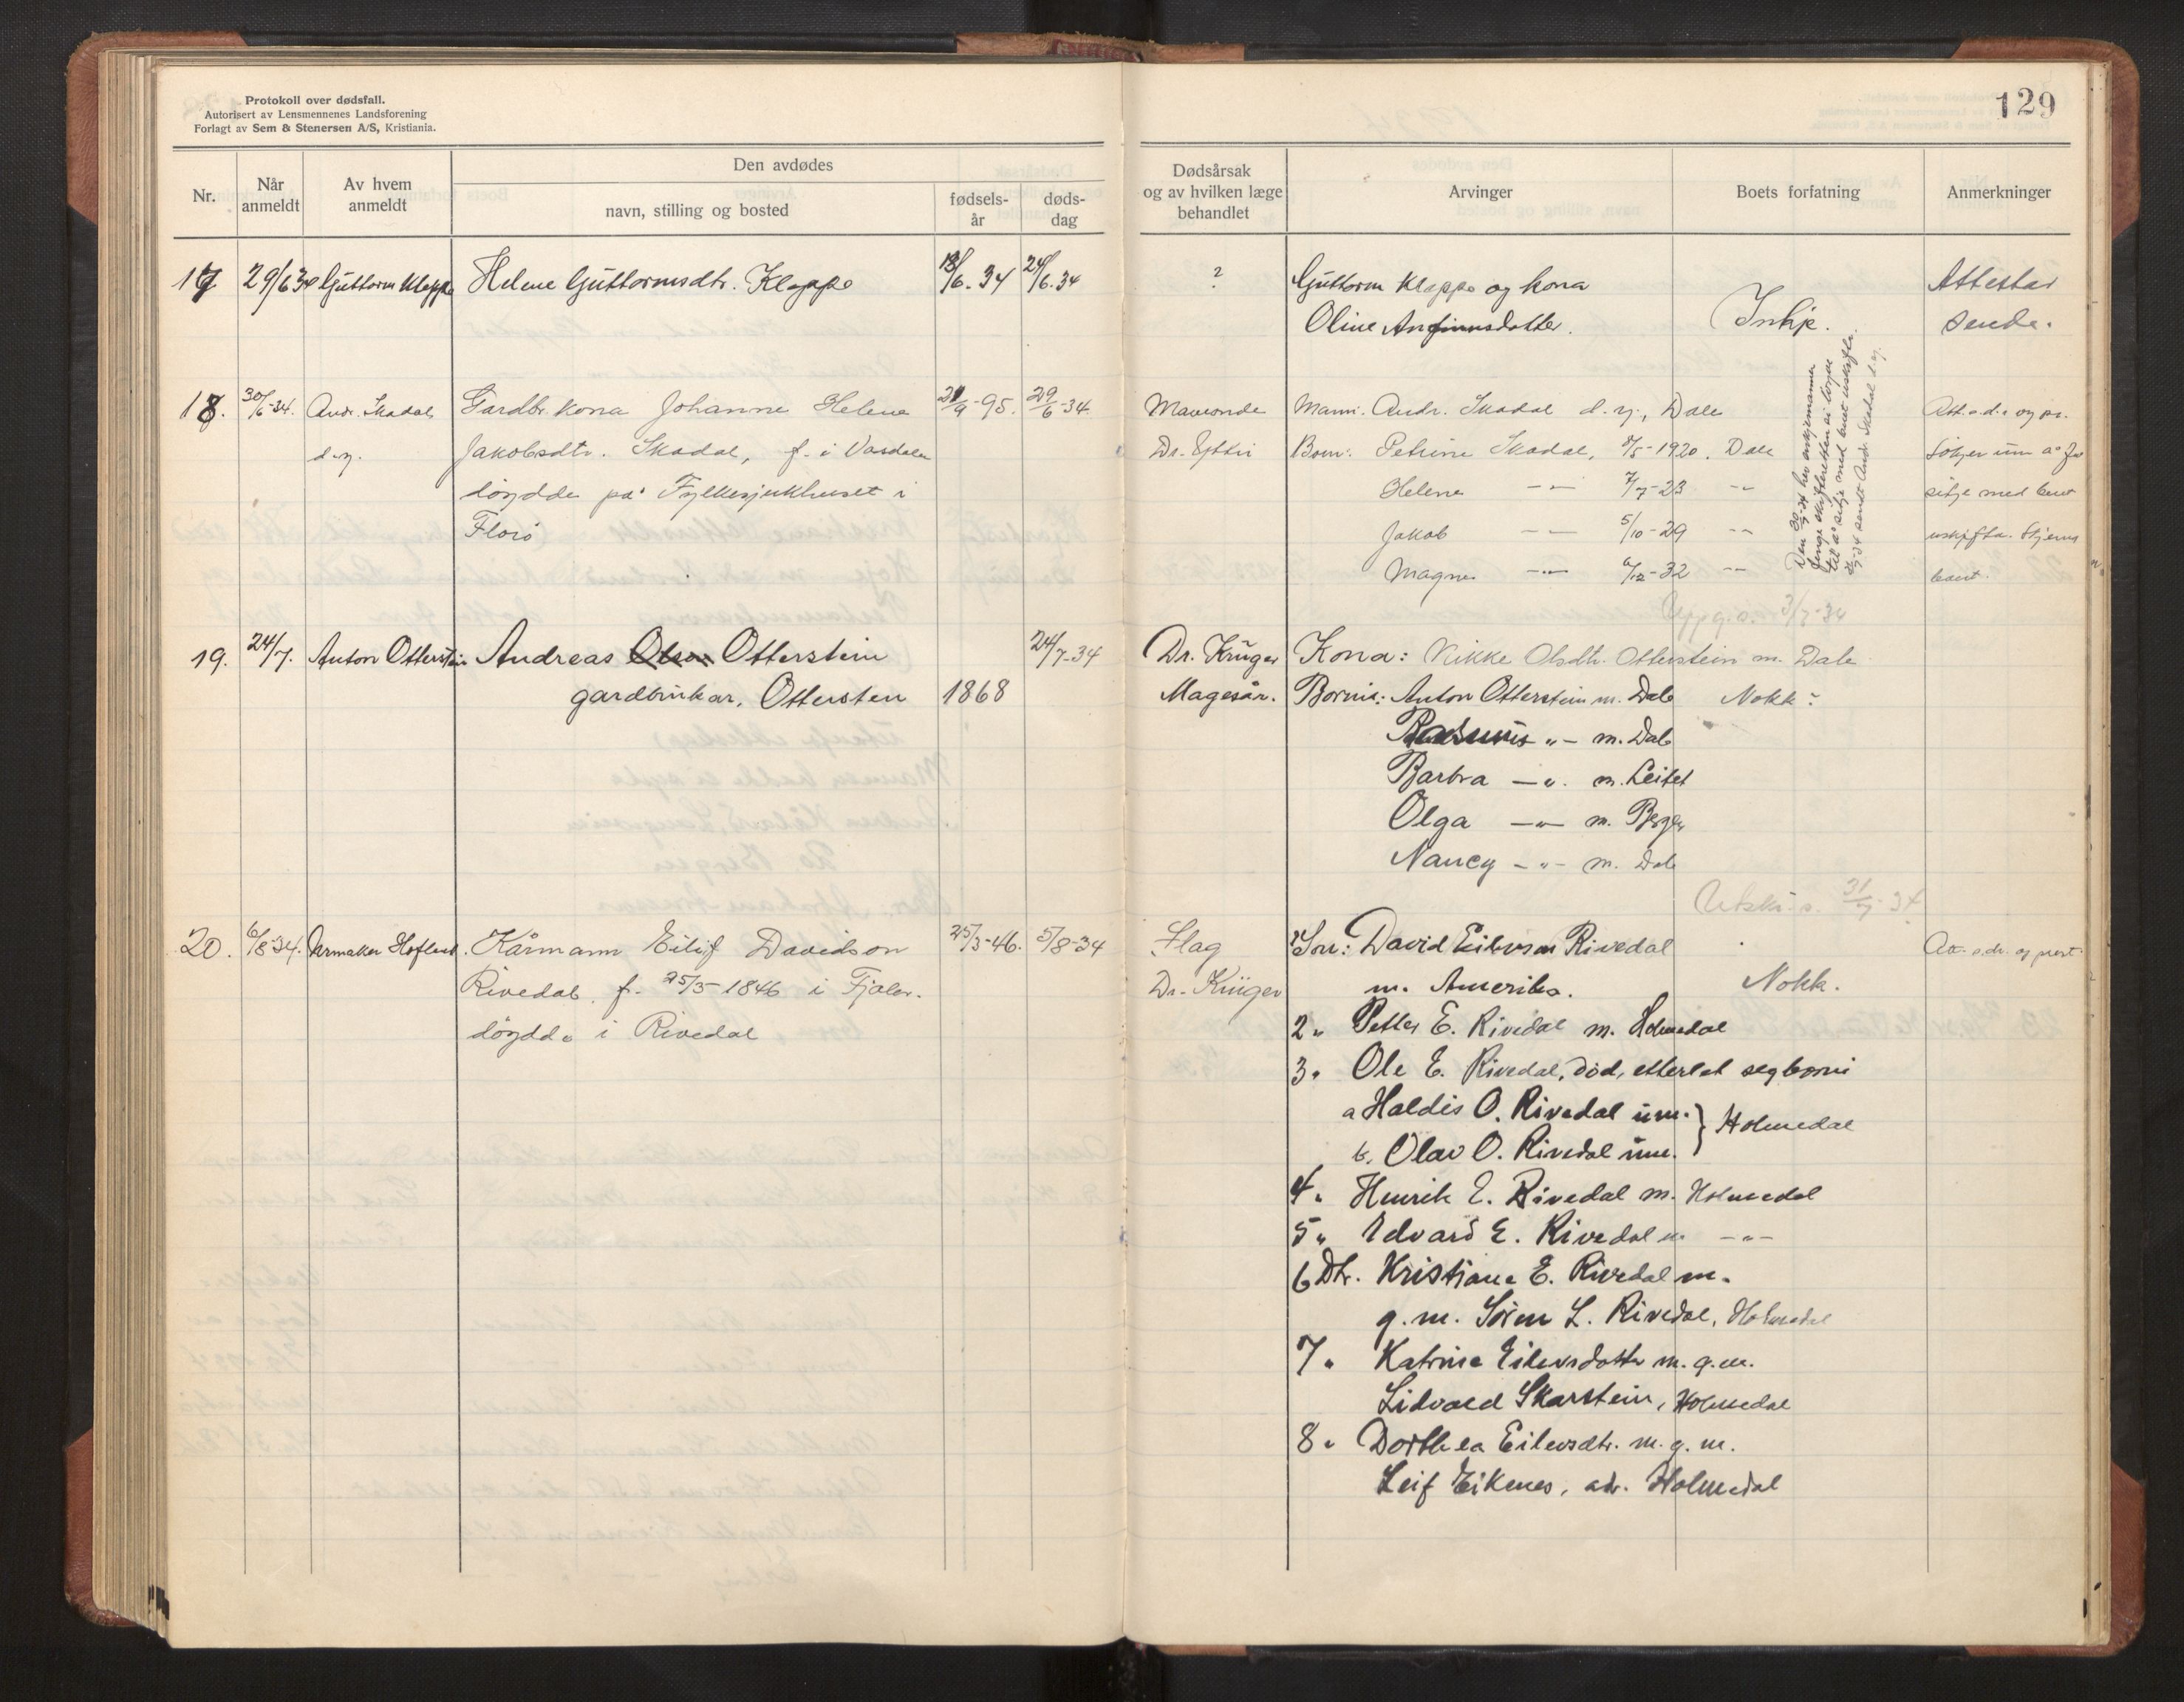 Protokoll over dødsfall.
Autorisert av Lensmennenes Landsforening
Forlagt av Sem & Stenersen A/S, Kristiania.
129
Nr.
Når anmeldt
Av hvem anmeldt
Den avdødes
navn, stilling og bosted
fødsels-år
døds-dag
Dødsårsak og av hvilken læge behandlet
Arvinger
Boets forfatning
Anmerkninger
17 29/6 34 Guttorm Kleppe Helene Guttormsdtr. Kleppe 18/6.34 24/6.34 ? Guttorm Kleppe og kona Attestar
Oline Anfinnsdotter. Inkje. sende.
18. 30/6-34. Andr. Skadal Gardbr.kona Johanne Helene 21/9-95. 29/6-34. Mann: Andr. Skadal d.y., Dale
d.y. Jakobsdtr. Skadal, f. i Vasdalen Dr. Born: Petrine Skadal, 8/5-1920. Dale
døydde på Fylkesjukhuset i Helene -"- 7/7-23 -"- sitje med buet
Florø Jakob -"- 5/10-29 -"- uskifta.
Magne -"- 6/12-32 -"- buet.
Den 30/7-34 hev
til å sitje med buet uskifte.
sendt Andr. Skadal d.y.
3/7-34
19. 24/7. Anton Otterstein Andreas Olsen Otterstein 24/7-34 Dr. Krüger Kona: Rikke Olsdtr. Otterstein m. Dale
gardbrukar, Ottersten 1868 Magesår. Borni: Anton Otterstein m. Dale Nokk:
Rasmus -"- m. Dale
Barbra -"- m. Leitet
Olga -"- m. Bergen
Nancy -"- m. Dale
31/7-34
20. 6/8-34. Urmaker Hofland. Kårmann Eilif Davidson 25/5-46. 5/8-34 Slag 1 Son: David Eilevson Rivedal
Rivedal, f. 25/5-1846 i Fjaler. Dr. Krüger m. Amerika. Nokk.
døydde i Rivedal 2 " Petter E. Rivedal m. Holmedal
3 " Ole E. Rivedal, død, etterlet seg borni
a Haldis O. Rivedal um. } Holmedal
b. Olav O. Rivedal um.
4 " Henrik E. Rivedal m. Holmedal
5 " Edvard E. Rivedal m -"-
6 Dtr. Kristiane E. Rivedal m.
g.m. Søren L. Rivedal, Holmedal
7 " Katrine Eilevsdotter m. g.m.
Lidvard Skarstein, Holmedal
8 " Dorthea Eilevsdtr. m. g. m.
Leif Eikenes, adr. Holmedal